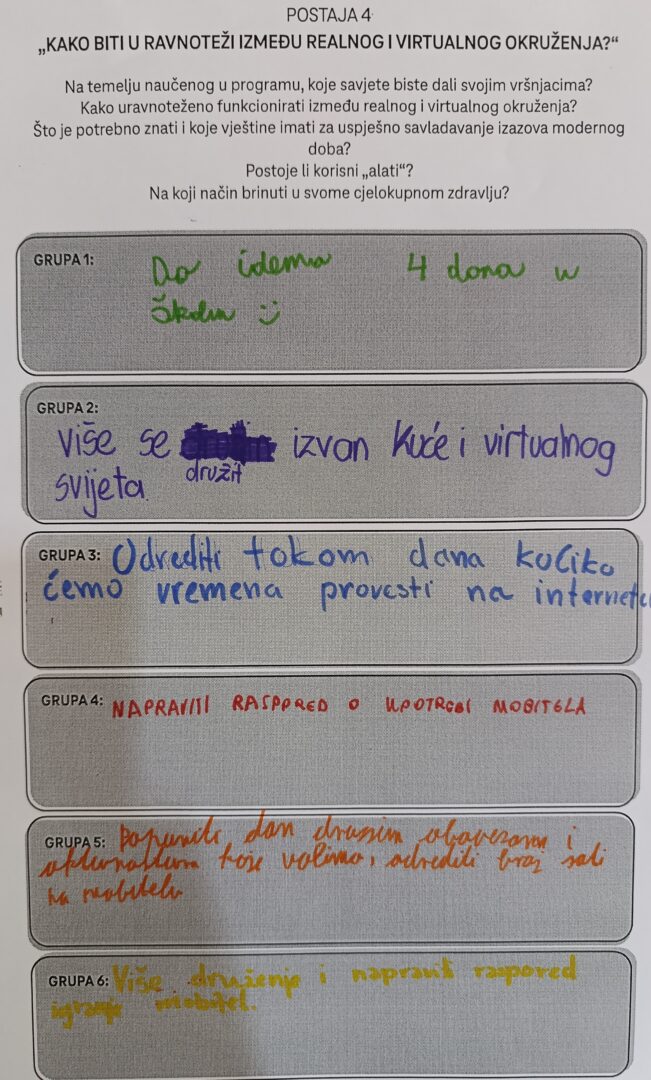 POSTAJA 4
„KAKO BITI U RAVNOTEŽI IZMEĐU REALNOG I VIRTUALNOG OKRUŽENJA?“
Na temelju naučenog u programu, koje savjete biste dali svojim vršnjacima?
Kako uravnoteženo funkcionirati između realnog i virtualnog okruženja?
Što je potrebno znati i koje vještine imati za uspješno savladavanje izazova modernog
doba?
Postoje li korisni „alati“?
Na koji način brinuti u svome cjelokupnom zdravlju?
GRUPA 1: Da idemo 4 dana u
školu :)
GRUPA 2:
više se družit izvan kuće i virtualnog
svijeta.
GRUPA 3: Odrediti tokom dana koliko
ćemo vremena provesti na internetu
GRUPA 4: NAPRAVITI RASPORED O UPOTREBI MOBITELA
GRUPA 5: Popuniti dan drugim obavezama i
aktivnostima koje volimo, odrediti broj sati
na mobitelu
GRUPA 6: Više druženja i napravit raspored
igranja mobitel.